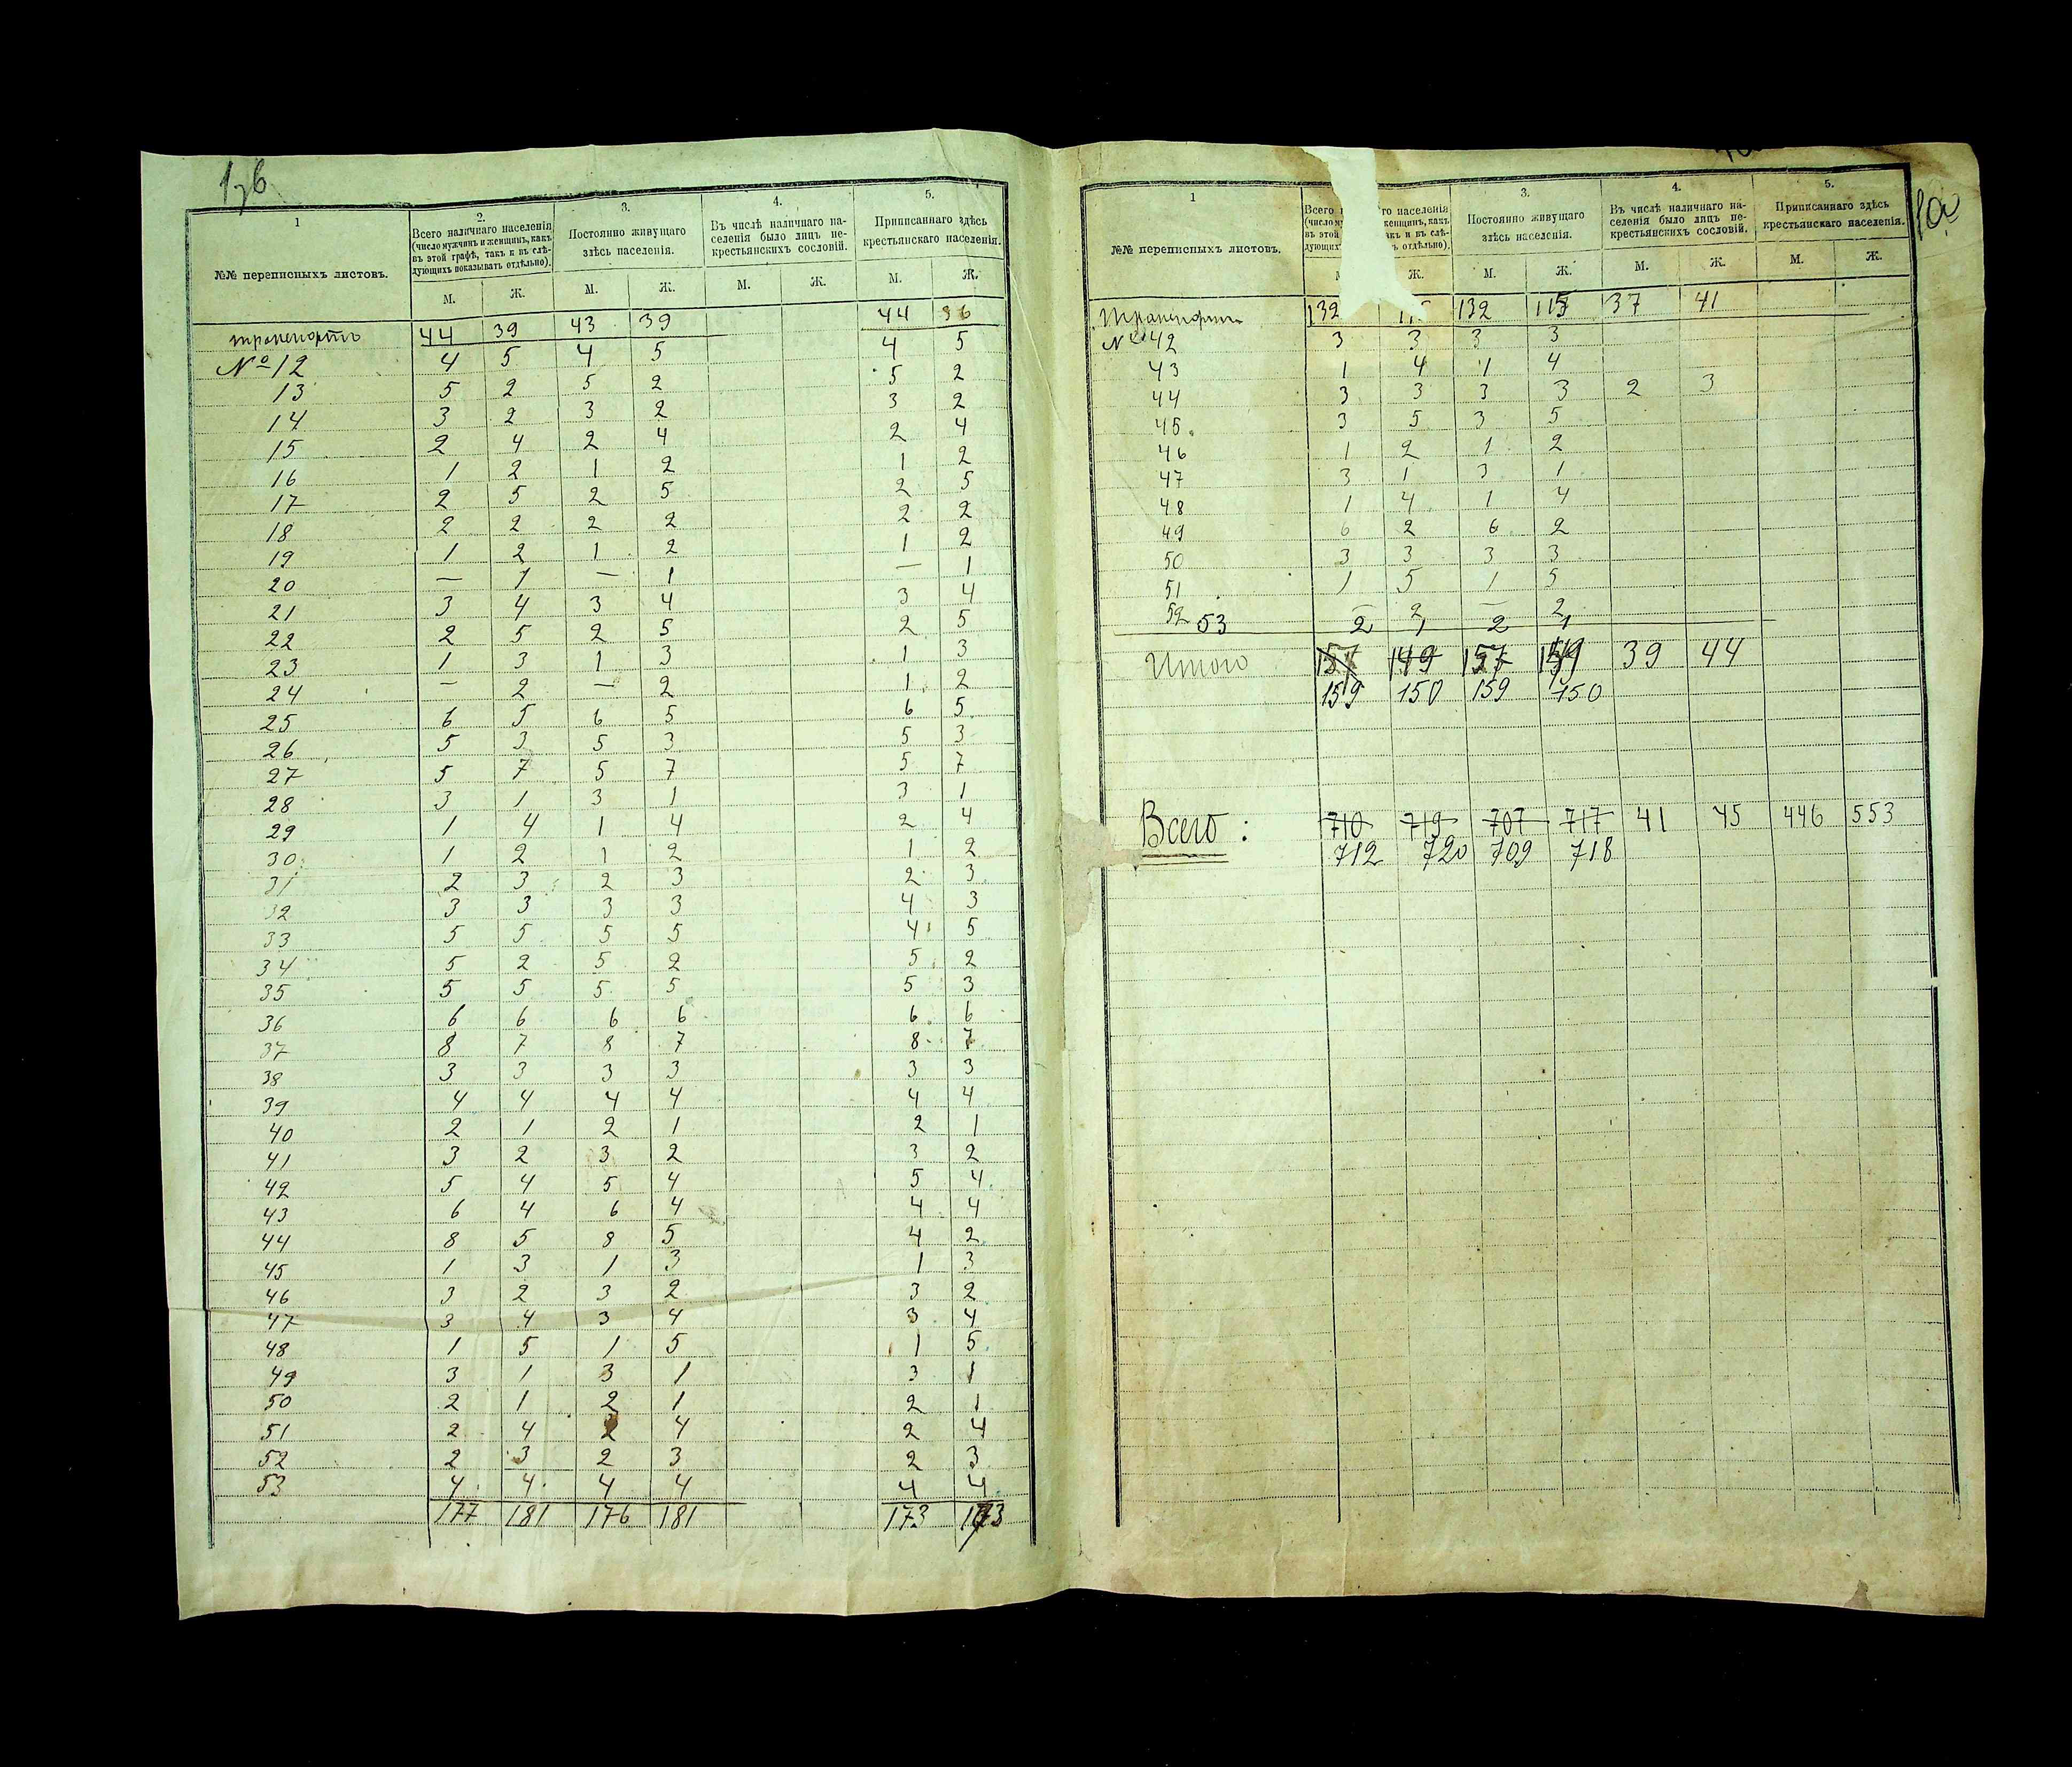 176
1
2.
3.
4.
5.
№№ переписныхъ листовъ.
Всего наличнаго населенія
(число мужчинъ и женщинъ, какъ
въ этой графѣ, такъ и въ слѣ-
дующихъ показывать отдѣльно).
Постоянно живущаго
здѣсь населенія.
Въ числѣ наличнаго на-
селенія было лицъ не-
крестьянскихъ сословій.
Приписаннаго здѣсь
крестьянскаго населенія.
М. Ж. М. Ж. М. Ж. М. Ж.
транспортъ 44 39 43 39 44 36
№ 12 4 5 4 5 4 5
13 5 2 5 2 5 2
14 3 2 3 2 3 2
15 2 4 2 4 2 4
16 1 2 1 2 1 2
17 2 5 2 5 2 5
18 2 2 2 2 2 2
19 1 2 1 2 1 2
20 — 1 — 1 — 1
21 3 4 3 4 3 4
22 2 5 2 5 2 5
23 1 3 1 3 1 3
24 — 2 — 2 1 2
25 6 5 6 5 6 5
26 5 3 5 3 5 3
27 5 7 5 7 5 7
28 3 1 3 1 3 1
29 1 4 1 4 2 4
30 1 2 1 2 1 2
31 2 3 2 3 2 3
32 3 3 3 3 4 3
33 5 5 5 5 4 5
34 5 2 5 2 5 2
35 5 5 5 5 5 3
36 6 6 6 6 6 6
37 8 7 8 7 8 7
38 3 3 3 3 3 3
39 4 4 4 4 4 4
40 2 1 2 1 2 1
41 3 2 3 2 3 2
42 5 4 5 4 5 4
43 6 4 6 4 4 4
44 8 5 8 5 4 2
45 1 3 1 3 1 3
46 3 2 3 2 3 2
47 3 4 3 4 3 4
48 1 5 1 5 1 5
49 3 1 3 1 3 1
50 2 1 2 1 2 1
51 2 4 2 4 2 4
52 2 3 2 3 2 3
53 4 4 4 4 4 4
177 181 176 181 173 173
1
3.
4.
5.
№№ переписныхъ листовъ.
Всего го населенія
женщинъ, какъ
въ этой акъ и въ слѣ-
дующихъ отдѣльно).
Постоянно живущаго
здѣсь населенія.
Въ числѣ наличнаго на-
селенія было лицъ не-
крестьянскихъ сословій.
Приписаннаго здѣсь
крестьянскаго населенія.
Ж. М. Ж. М. Ж. М. Ж.
Транспортъ 132 132 115 37 41
№ 42 3 3 3 3
43 1 4 1 4
44 3 3 3 3 2 3
45 3 5 3 5
46 1 2 1 2
47 3 1 3 1
48 1 4 1 4
49 6 2 6 2
50 3 3 3 3
51 1 5 1 5
52 — 2 — 2
53 2 1 2 1
Итого 157 149 157 149 39 44
159 150 159 150
Всего: 710 719 707 717 41 45 446 553
712 720 709 718